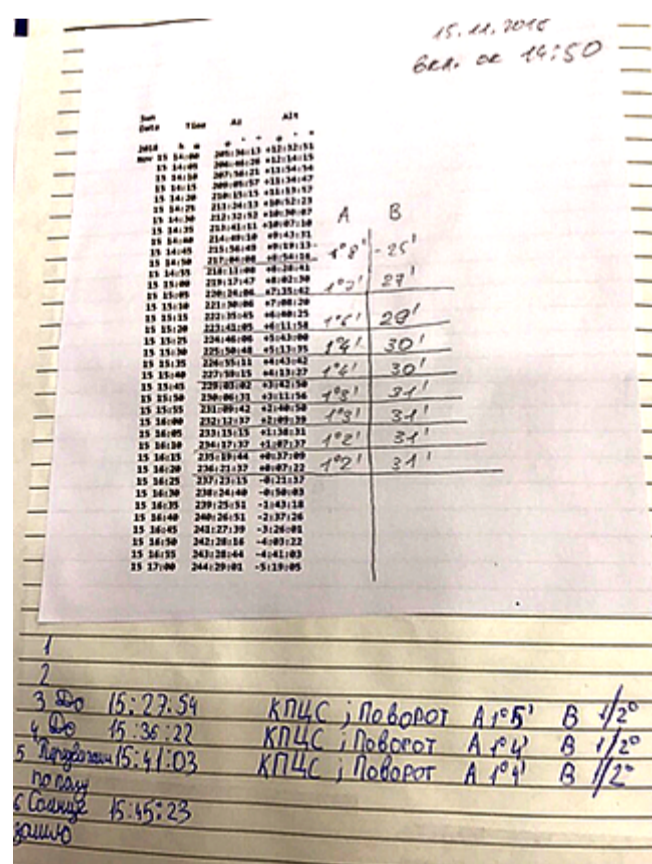 15.11.2018
вкл. ок 14:50
Sun
Date Time Az Alt
2018 h m ° ' " ° ' "
Nov 15 14:00 205:36:13 +12:32:51
15 14:05 206:46:26 +12:14:15
15 14:10 207:56:21 +11:54:54
15 14:15 209:05:57 +11:34:47
15 14:20 210:15:15 +11:13:57
15 14:25 211:24:13 +10:52:23
15 14:30 212:32:52 +10:30:07
15 14:35 213:41:11 +10:07:10
A B
15 14:40 214:49:10 +9:43:31
15 14:45 215:56:49 +9:19:13
15 14:50 217:04:08 +8:54:16 1°8' -25'
15 14:55 218:11:08 +8:28:41
15 15:00 219:17:47 +8:02:30
15 15:05 +7:35:42 1°7' 27'
15 15:10 221:30:06 +7:08:20
15 15:15 222:35:45 +6:40:25
15 15:20 223:41:05 +6:11:58 1°6' 29'
15 15:25 224:46:06 +5:43:00
15 15:30 225:50:48 +5:13:35 1°4' 30'
15 15:35 226:55:11 +4:43:42
15 15:40 227:59:15 +4:13:27 1°4' 30'
15 15:45 229:03:02 +3:42:50
15 15:50 230:06:31 +3:11:56 1°3' 31'
15 15:55 231:09:42 +2:40:50
15 16:00 232:12:37 +2:09:39 1°3' 31'
15 16:05 233:15:15 +1:38:31
15 16:10 234:17:37 +1:07:37 1°2' 31'
15 16:15 235:19:44 +0:37:09
15 16:20 236:21:37 +0:07:22 1°2' 31'
15 16:25 237:23:15 -0:21:37
15 16:30 238:24:40 -0:50:03
15 16:35 239:25:51 -1:43:18
15 16:40 240:26:51 -2:37:26
15 16:45 241:27:39 -3:26:01
15 16:50 242:28:16 -4:03:22
15 16:55 243:28:44 -4:41:03
15 17:00 244:29:01 -5:19:05
1
2
3 До 15:27:54 КПЦС ; Поворот А 1°5' В 1/2°
4 До 15:36:22 КПЦС ; Поворот А 1°4' В 1/2°
5 15:41:03 КПЦС ; Поворот А 1°4' В 1/2°
по полу
6 Солнце 15:45:23
зашло